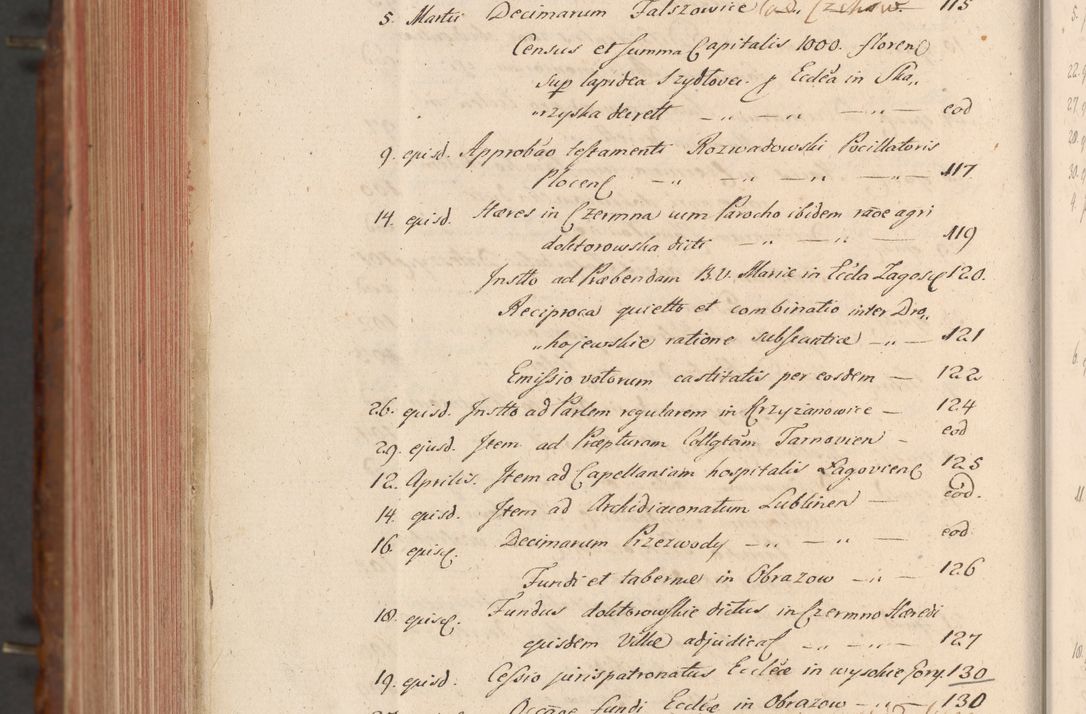 5. Martii Decimarum Falszowice 115
Census et summa Capitalis 1000. floren
sup lapidea Szydłovei p Eccl̃a in Ska„
„rzyska decrett — „ — „ — „ — eod
9. ejusd. Approbão testamenti Rozwadowski Pocillatoris
Plocen — „ — „ — „ — „ — 117
14. ejusd. Hæres in Czermna cum Parocho ibidem rãoe agri
doktorowska dicti — „ — „ — 119
Instto ad Præbendam B.V. Mariæ in Eccla Zagosc 120.
Reciproca quietto et combinatio inter Dro„
„hojewskie ratione substantiæ — „ — 121
Emissio votorum castitatis per eosdem — 122
26. ejusd. Instto ad Partem regularem in Krzyżanowice — 124
29. ejusd. Item ad Præpturam Collgtãm Tarnovien — eod
12. Aprilis. Item ad Capellaniam hospitalis Łagovien 125
14. ejusd. Item ad Archidiaconatum Lublinen — eod.
16. ejusd. Decimarum Przezwody — „ — „ — eod
Fundi et tabernæ in Obrazow — „ — 126
18. ejusd. Fundus doktorowskie dictus in Czermno Hæredi
ejusdem Villæ adjudicat — „ — „ — 127
19. ejusd. Cessio jurispatronatus Eccleæ in wysokie Gory. 130
27. Occãoe fundi Eccleæ in Obrazow — „ — 130